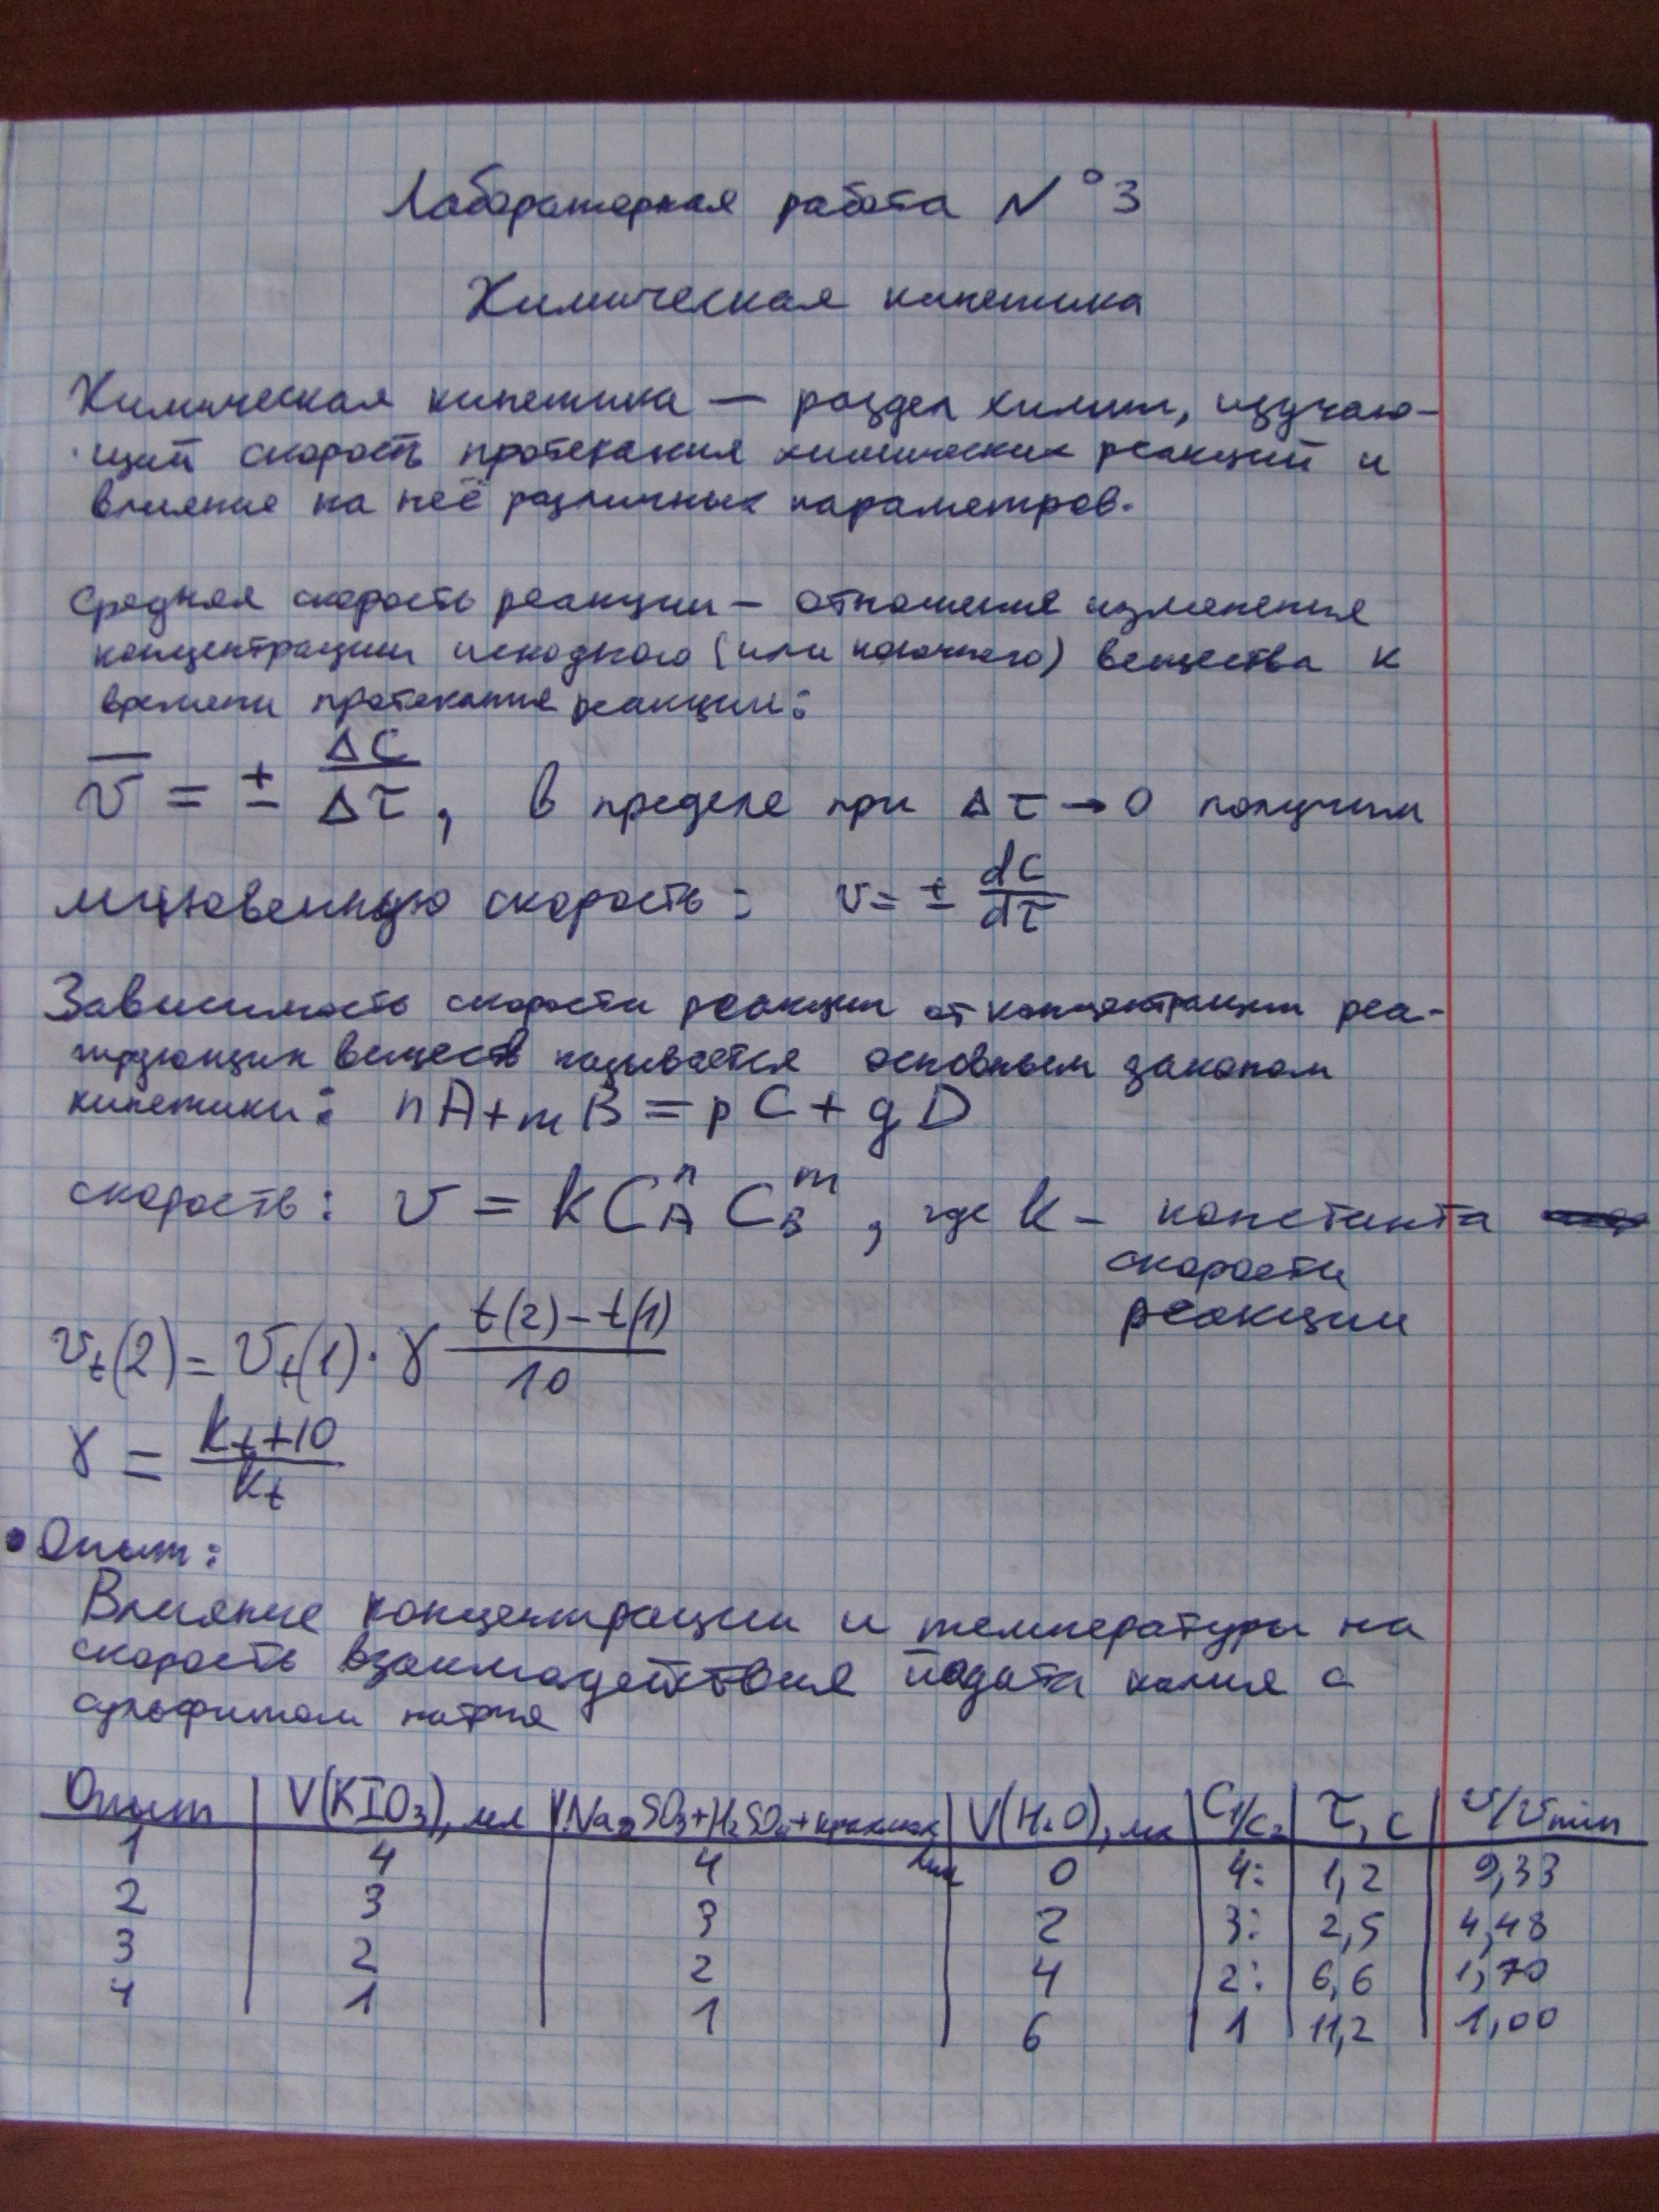 Лабораторная работа N°3
Химическая кинетика
Химическая кинетика — раздел химии, изучаю-
щий скорость протекания химических реакций и
влияние на неё различных параметров.
Средняя скорость реакции — отношение изменения
концентрации исходного (или конечного) вещества к
времени протекания реакции:
v̅ = ± ΔC/Δτ, в пределе при Δτ → 0 получим
мгновенную скорость: v = ± dC/dτ
Зависимость скорости реакции от концентрации реа-
гирующих веществ называется основным законом
кинетики: nA + mB = pC + qD
скорость: v = k C_A^n C_B^m, где k — константа
скорости
реакции
v_t(2) = v_t(1) · γ (t(2) - t(1))/10
γ = k_t+10 / k_t
• Опыт:
Влияние концентрации и температуры на
скорость взаимодействия йодата калия с
сульфитом натрия
Опыт | V(KIO₃), мл | VNa₂SO₃+H₂SO₄+крахмал мл | V(H₂O), мл | C₁/C₂ | τ, с | v/vmin
1 | 4 | 4 | 0 | 4: | 1,2 | 9,33
2 | 3 | 3 | 2 | 3: | 2,5 | 4,48
3 | 2 | 2 | 4 | 2: | 6,6 | 1,70
4 | 1 | 1 | 6 | 1 | 11,2 | 1,00